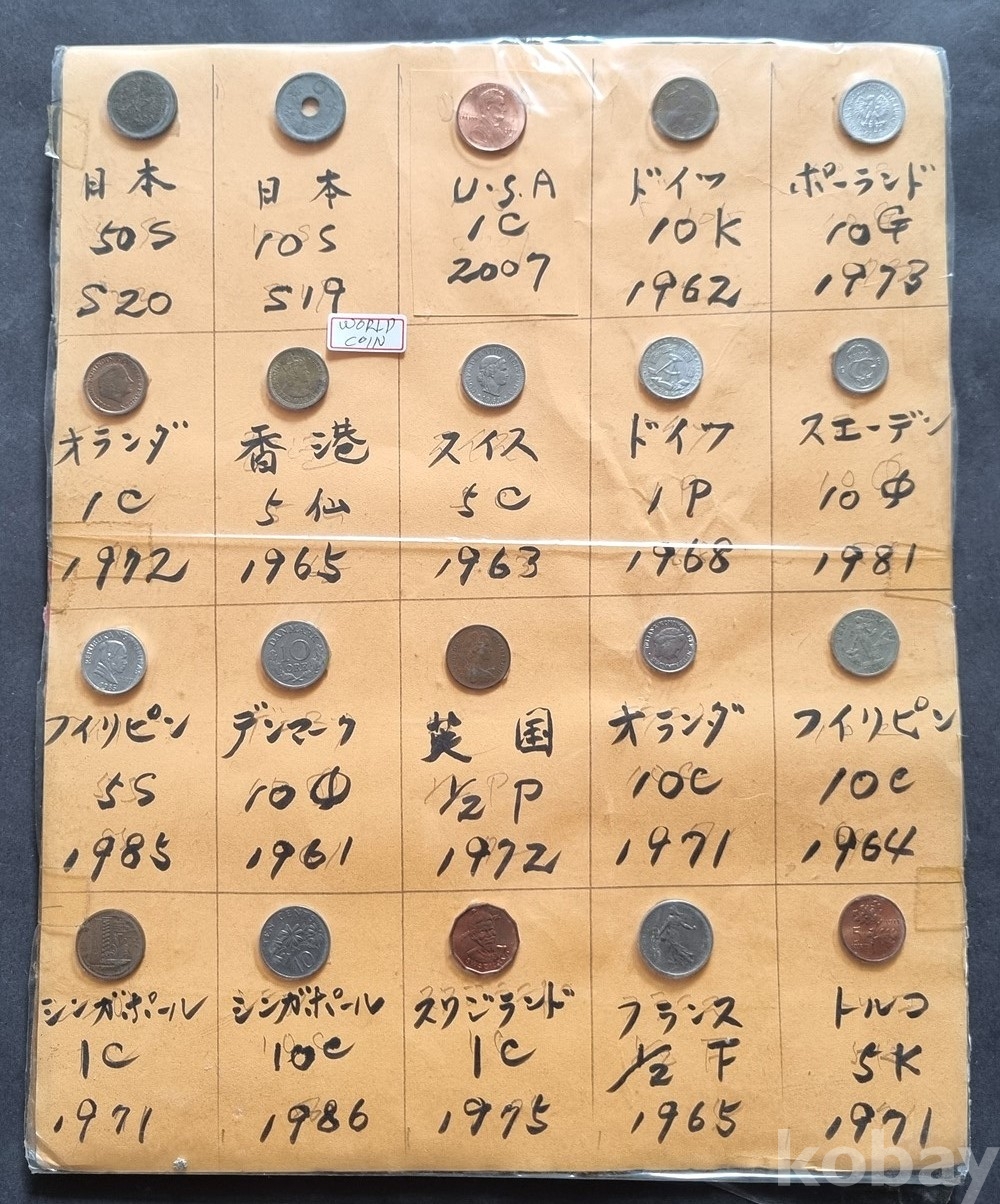 日本
50S
S20
日本
10S
S19
U.S.A
1C
2007
ドイツ
10K
1962
ポーランド
10G
1973
WORLD
COIN
オランダ
1C
1972
香港
5仙
1965
スイス
5C
1963
ドイツ
1P
1968
スエーデン
10Φ
1981
フイリピン
5S
1985
デンマーク
10Φ
1961
英国
1/2P
1972
オランダ
10C
1971
フイリピン
10C
1964
DANMARK
10
ØRE
シンガポール
1C
1971
シンガポール
10C
1986
10
スワジランド
1C
1975
フランス
1/2F
1965
トルコ
5K
1971
kobay